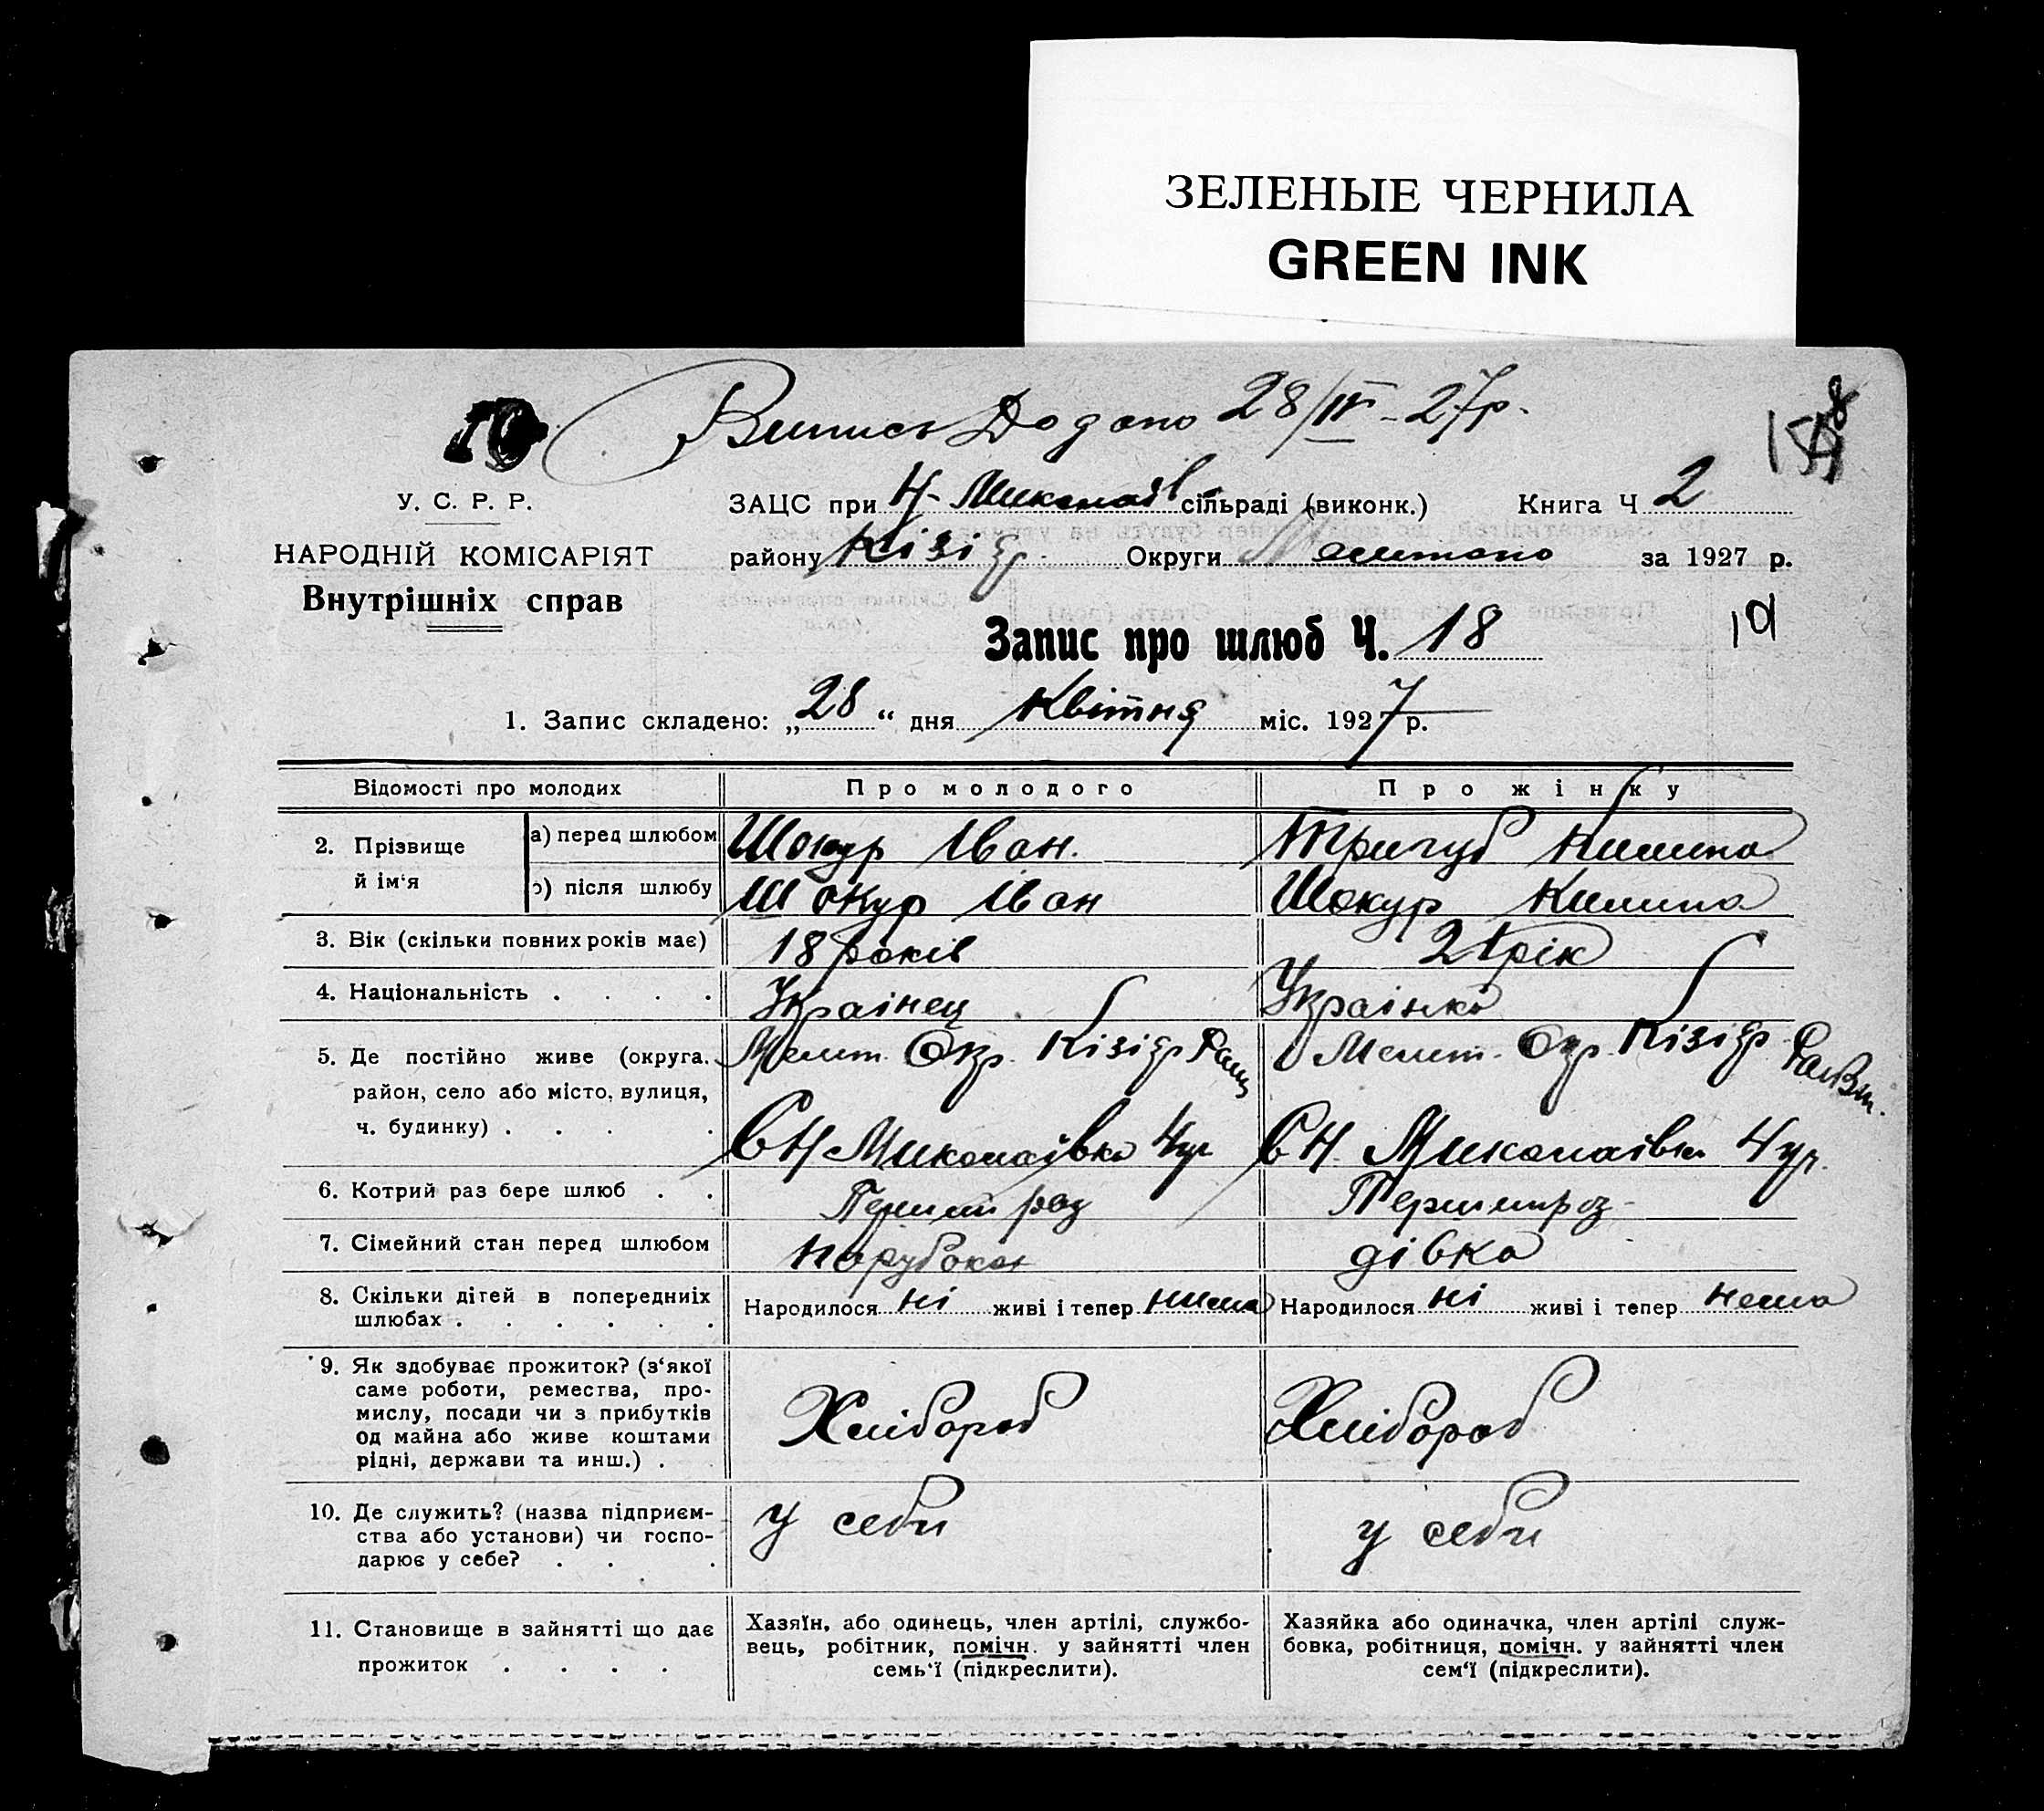 ЗЕЛЕНЫЕ ЧЕРНИЛА
GREEN INK
Выпись Додано 28/IV-27р.
158
У. С. Р. Р.
ЗАЦС при Н-Миколаїв сільраді (виконк.) Книга Ч 2
НАРОДНІЙ КОМІСАРІЯТ
району Кізіяр Округи за 1927 р.
Внутрішніх справ
Запис про шлюб Ч. 18
19
1. Запис складено: „28“ дня Квітня міс. 1927 р.
Відомості про молодих Про молодого Про жінку
2. Прізвище й ім‘я а) перед шлюбом Шокур Іван. Тригуб Килина
б) після шлюбу Шокур Іван Шокур Килина
3. Вік (скільки повних років має) 18 років 21 рік
4. Національність . . . . Украінец Украінка
5. Де постійно живе (округа, Мелит. Окр. Кізіяр Мелит. Окр. Кізіяр
район, село або місто, вулиця,
ч. будинку) . . . . С Н Миколаївка 4 ул С Н. Миколаівка 4 ул.
6. Котрий раз бере шлюб . . Перший раз Перший раз
7. Сімейний стан перед шлюбом Парубок дівка
8. Скільки дітей в попередніх Народилося ні живі і тепер нима Народилося ні живі і тепер нема
шлюбах . . . . . .
9. Як здобуває прожиток? (з‘якої
саме роботи, ремества, про-
мислу, посади чи з прибутків Хлібороб Хлібороб
од майна або живе коштами
рідні, держави та инш.) .
10. Де служить? (назва підприєм- у себи у себи
ства або установи) чи госпо-
дарює у себе? . . .
11. Становище в зайнятті що дає Хазяїн, або одинець, член артілі, службо- Хазяйка або одиначка, член артілі служ-
прожиток . . . . вець, робітник, помічн. у зайнятті член бовка, робітниця, помічн. у зайнятті член
семь‘ї (підкреслити). сем‘ї (підкреслити).